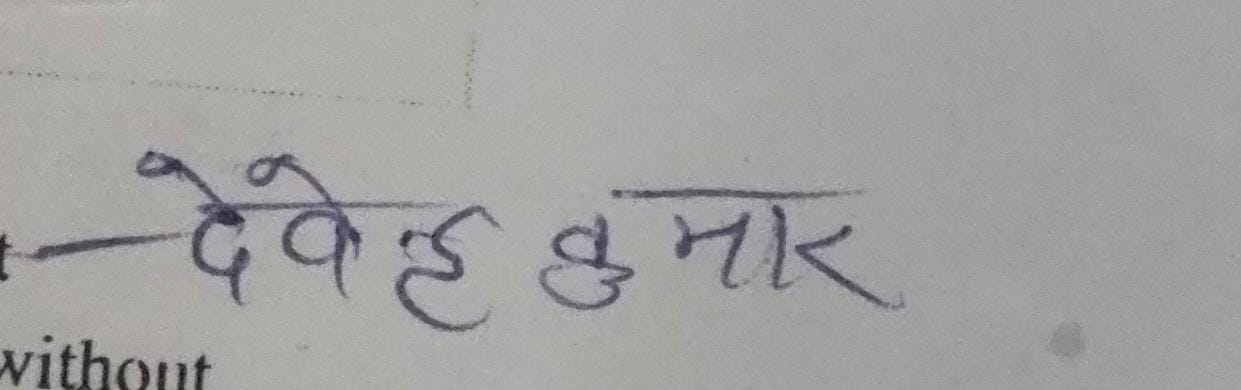 देवेन्द्र कुमार
without